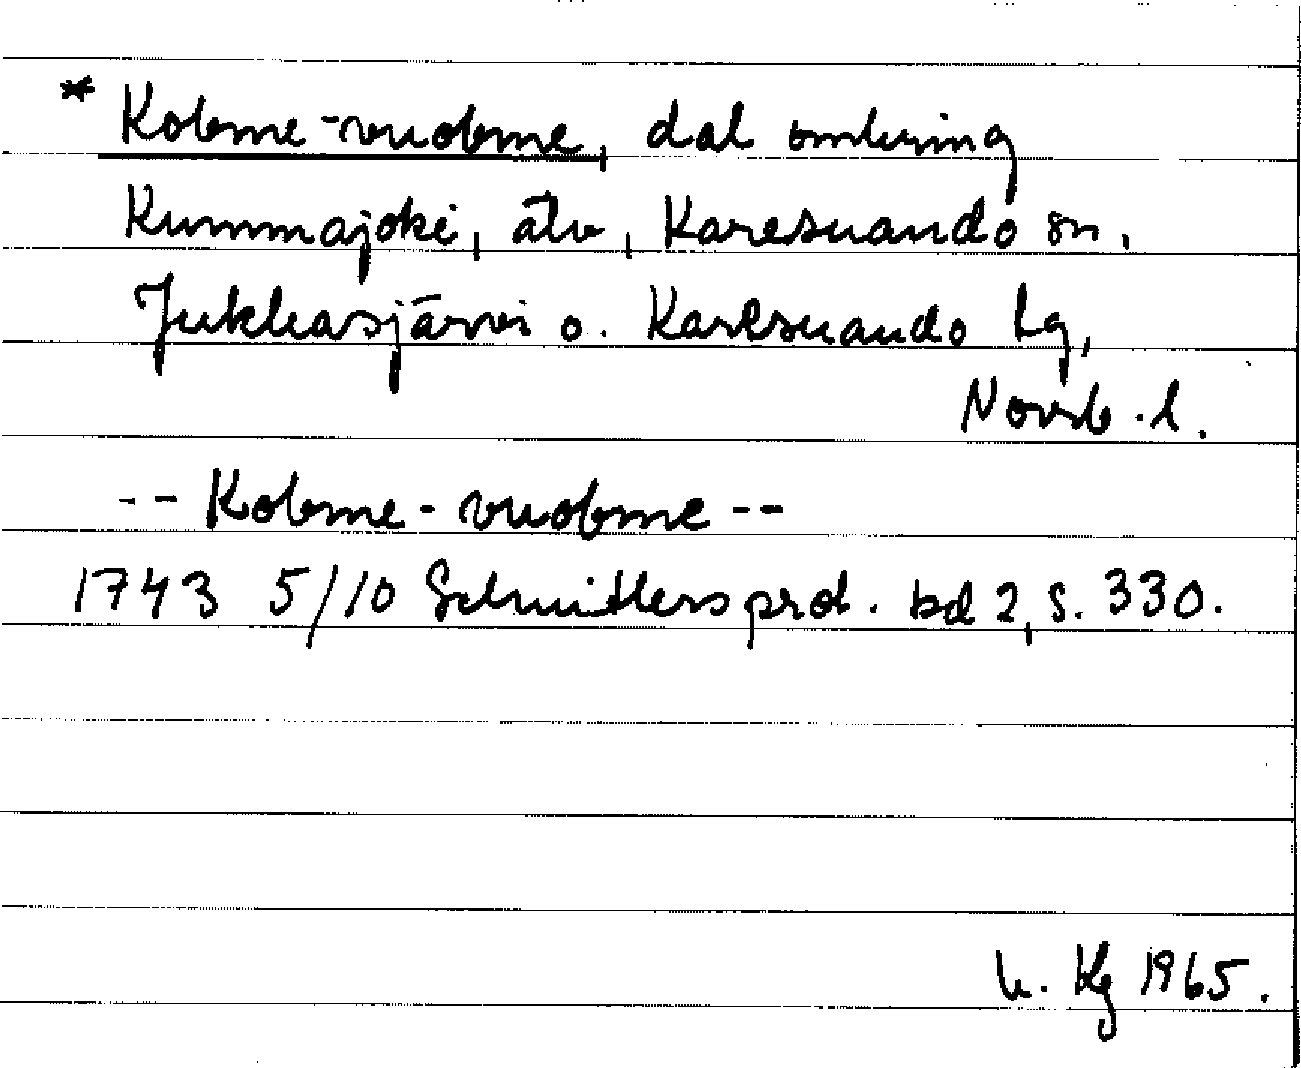 * Kobme-vuobme, dal omkring
Kummajoki, älv, Karesuando sn,
Jukkasjärvi o. Karesuando lg,
Norrb. l.
-- Kobme-vuobme --
1743 5/10 Schnitlers prot. bd 2, s. 330.
Kg 1965.